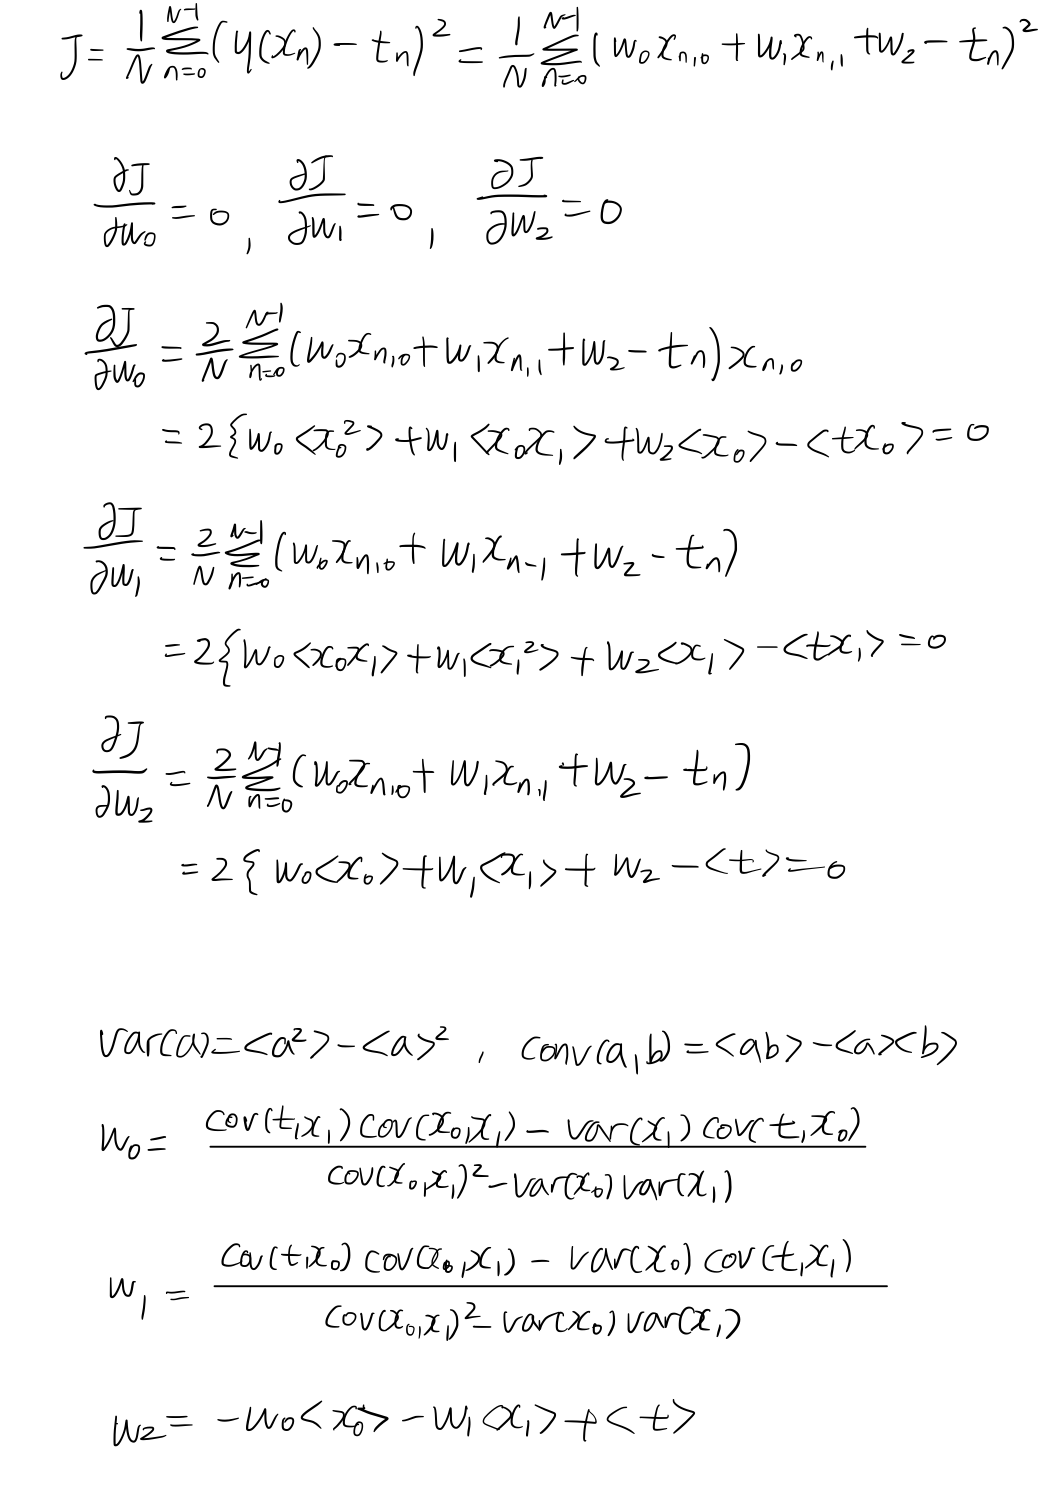 J = 1/N Σ_{n=0}^{N-1} (y(x_n) - t_n)^2 = 1/N Σ_{n=0}^{N-1} (w_0 x_{n,0} + w_1 x_{n,1} + w_2 - t_n)^2
∂J/∂w_0 = 0, ∂J/∂w_1 = 0, ∂J/∂w_2 = 0
∂J/∂w_0 = 2/N Σ_{n=0}^{N-1} (w_0 x_{n,0} + w_1 x_{n,1} + w_2 - t_n) x_{n,0}
= 2{w_0 <x_0^2> + w_1 <x_0 x_1> + w_2 <x_0> - <t x_0> = 0
∂J/∂w_1 = 2/N Σ_{n=0}^{N-1} (w_0 x_{n,0} + w_1 x_{n-1} + w_2 - t_n)
= 2{w_0 <x_0 x_1> + w_1 <x_1^2> + w_2 <x_1> - <t x_1> = 0
∂J/∂w_2 = 2/N Σ_{n=0}^{N-1} (w_0 x_{n,0} + w_1 x_{n,1} + w_2 - t_n)
= 2{ w_0 <x_0> + w_1 <x_1> + w_2 - <t> = 0
var(a) = <a^2> - <a>^2 , conv(a,b) = <ab> - <a><b>
w_0 = cov(t,x_1) cov(x_0,x_1) - var(x_1) cov(t,x_0) / cov(x_0,x_1)^2 - var(x_0) var(x_1)
w_1 = cov(t,x_0) cov(x_0,x_1) - var(x_0) cov(t,x_1) / cov(x_0,x_1)^2 - var(x_0) var(x_1)
w_2 = -w_0 <x_0> - w_1 <x_1> + <t>